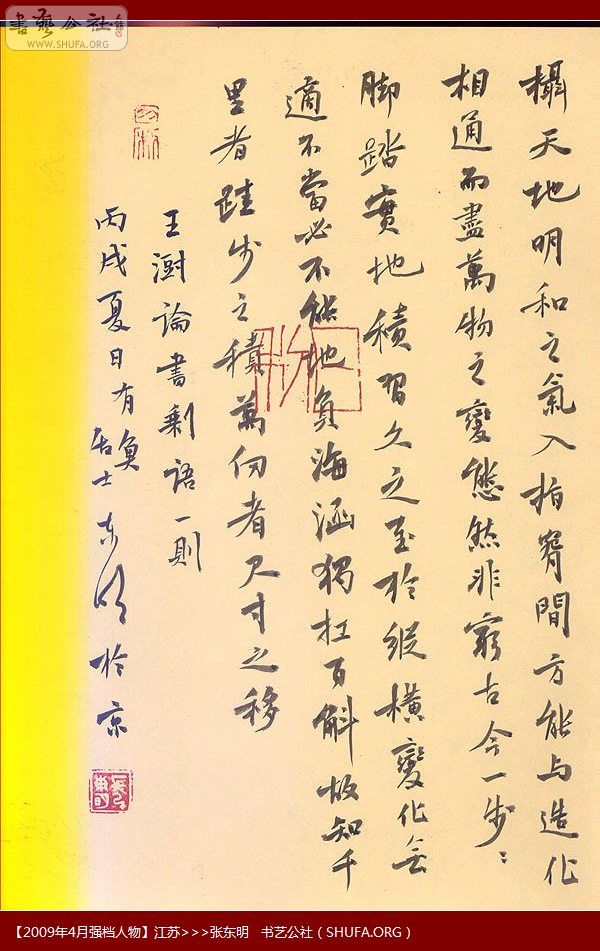 書藝公社
WWW.SHUFA.ORG
攝天地明和之氣入指間方能与造化
相通而盡萬物之變態然非窮古今一步〻
脚踏實地積習久之至於縱橫變化
適不當必不能地負海涵獨扛百斛故知千
里者跬步之積萬仞者尺寸之移
王澍論書剩语一則
丙戌夏日有奐居士东明於京
【2009年4月强档人物】江苏>>>张东明 书艺公社（SHUFA.ORG）